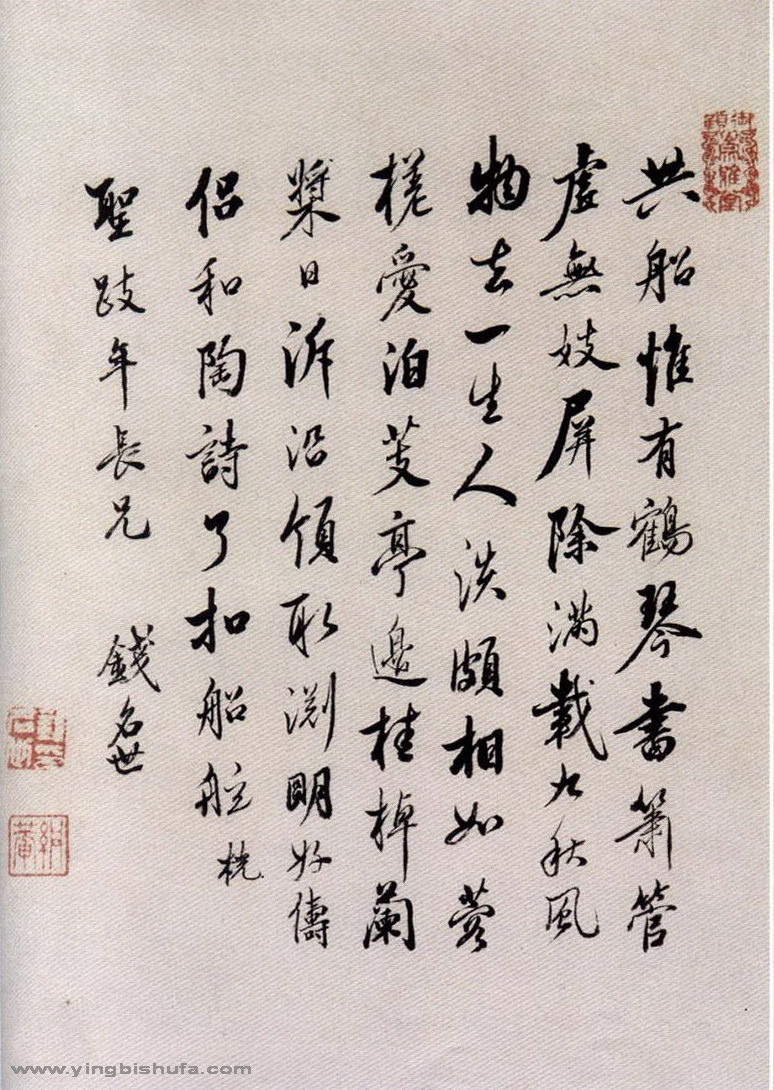 共船惟有鶴琴書簫管
虛無妓屏除滿載九秋風
物去一生人淡頗相如蓉
槎愛泊芰亭邊桂棹蘭
槳日泝沿領取淵明好儔
侶和陶詩了扣船舷
聖跂年長兄 錢名世
絅菴
www.yingbishufa.com